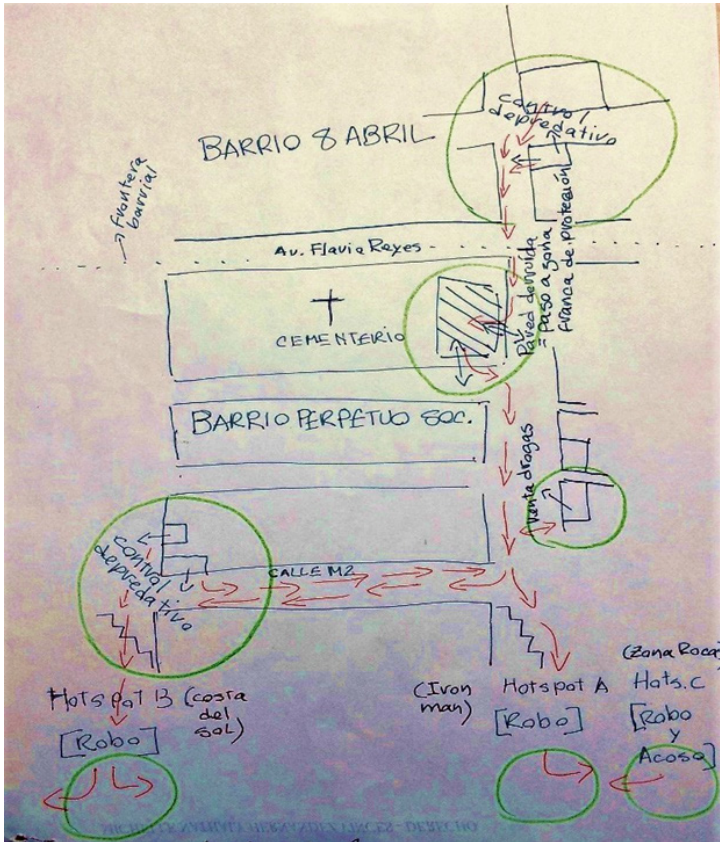 BARRIO 8 ABRIL
control
depredativo
→ frontera
barrial
Av. Flavio Reyes
Pared derruida
= Paso a zona
franca de protección
CEMENTERIO
BARRIO PERPETUO SOC.
Venta drogas
control
depredativo
CALLE M2
Hotspot B (costa
del
sol)
[Robo]
(Iron
man)
Hotspot A
[Robo]
(Zona Roca)
Hots. C
[Robo
y
Acoso]